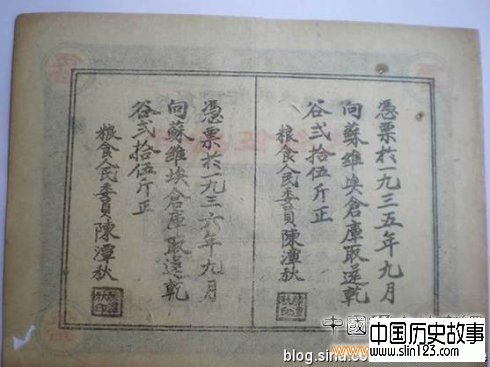 憑票於一九三五年九月
向蘇維埃倉庫取還乾
谷弍拾伍斤正
粮食人民委員陳潭秋
憑票於一九三六年九月
向蘇維埃倉庫取還乾
谷弍拾伍斤正
粮食人民委員陳潭秋
中國
中国历史故事
www.slin123.com
blog.sina.co